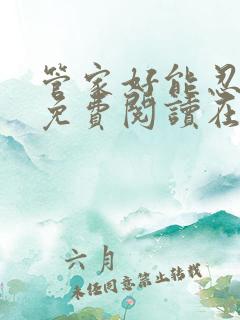 管家好能忍
免費閱讀在
六月
未经同意禁止转载